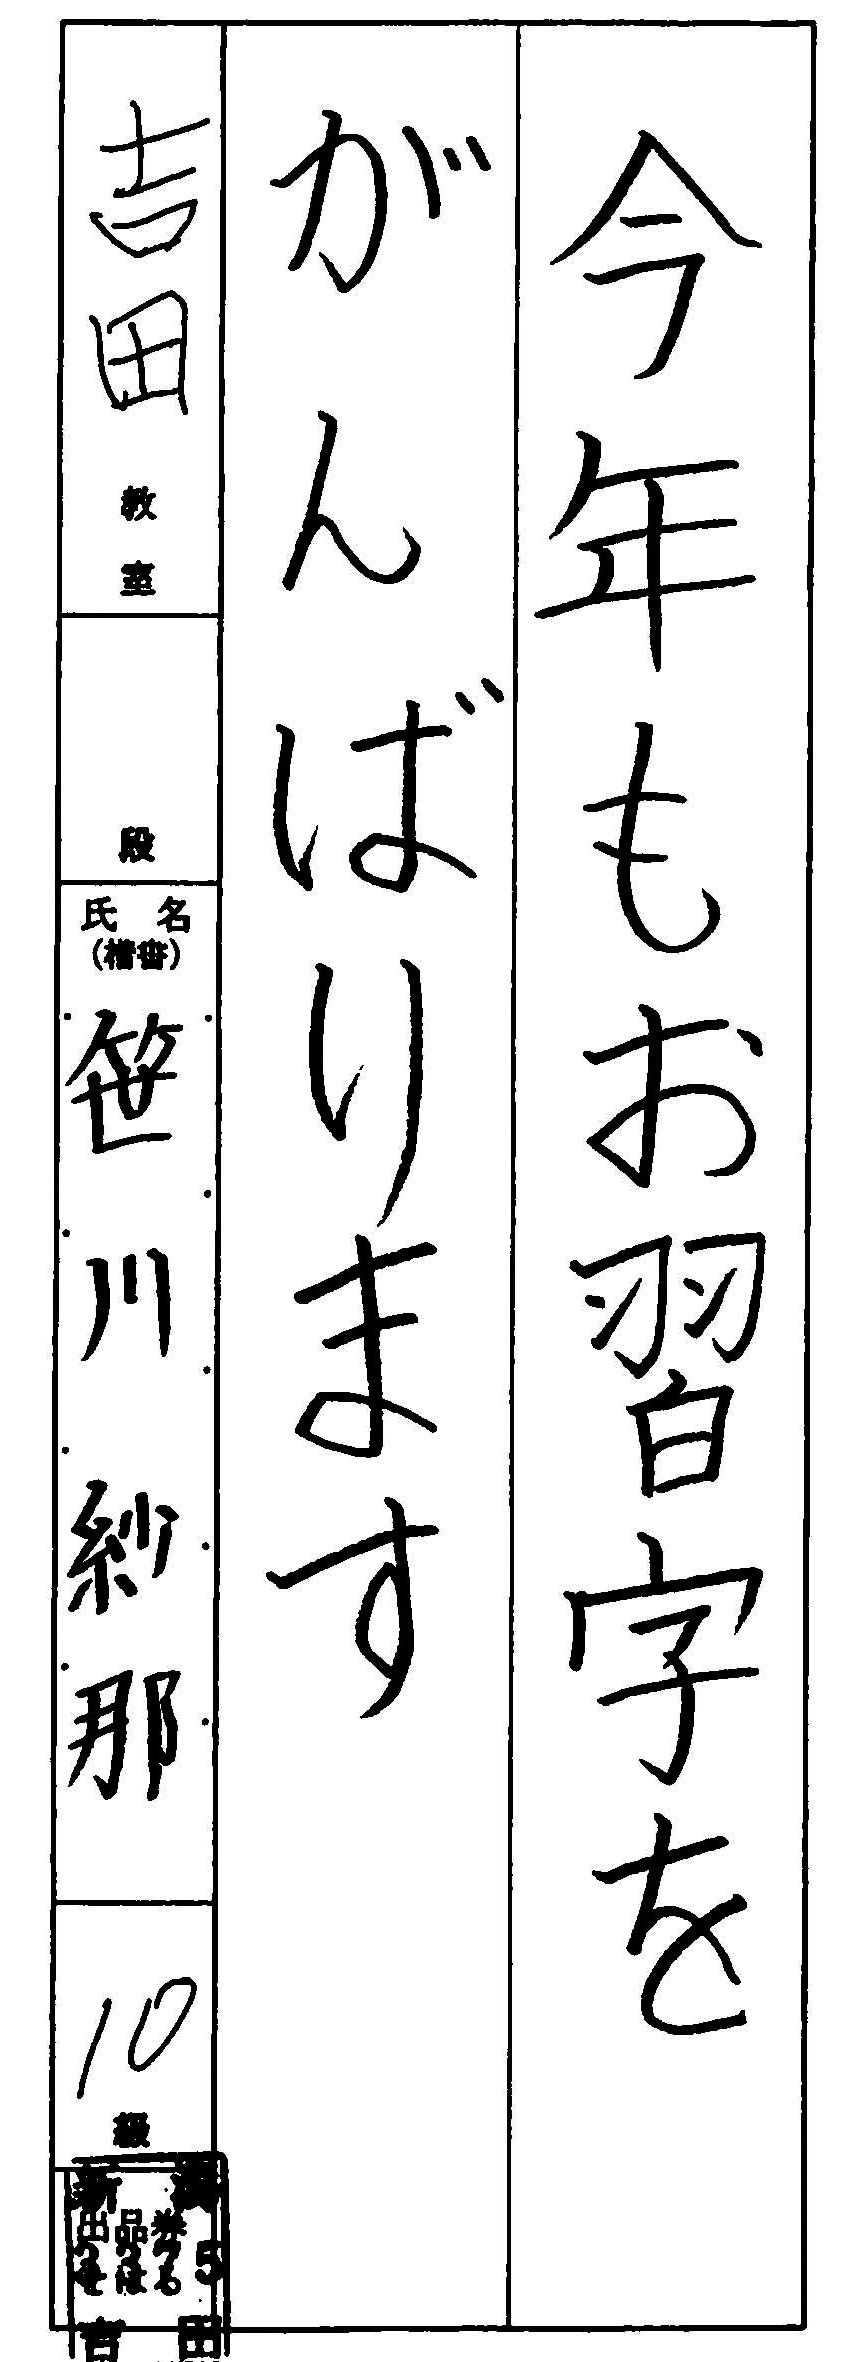 今年もお習字を
がんばります
吉田教室
段
氏名
(楷書)
笹川紗那
10級
新潟
出品券
5
吉田